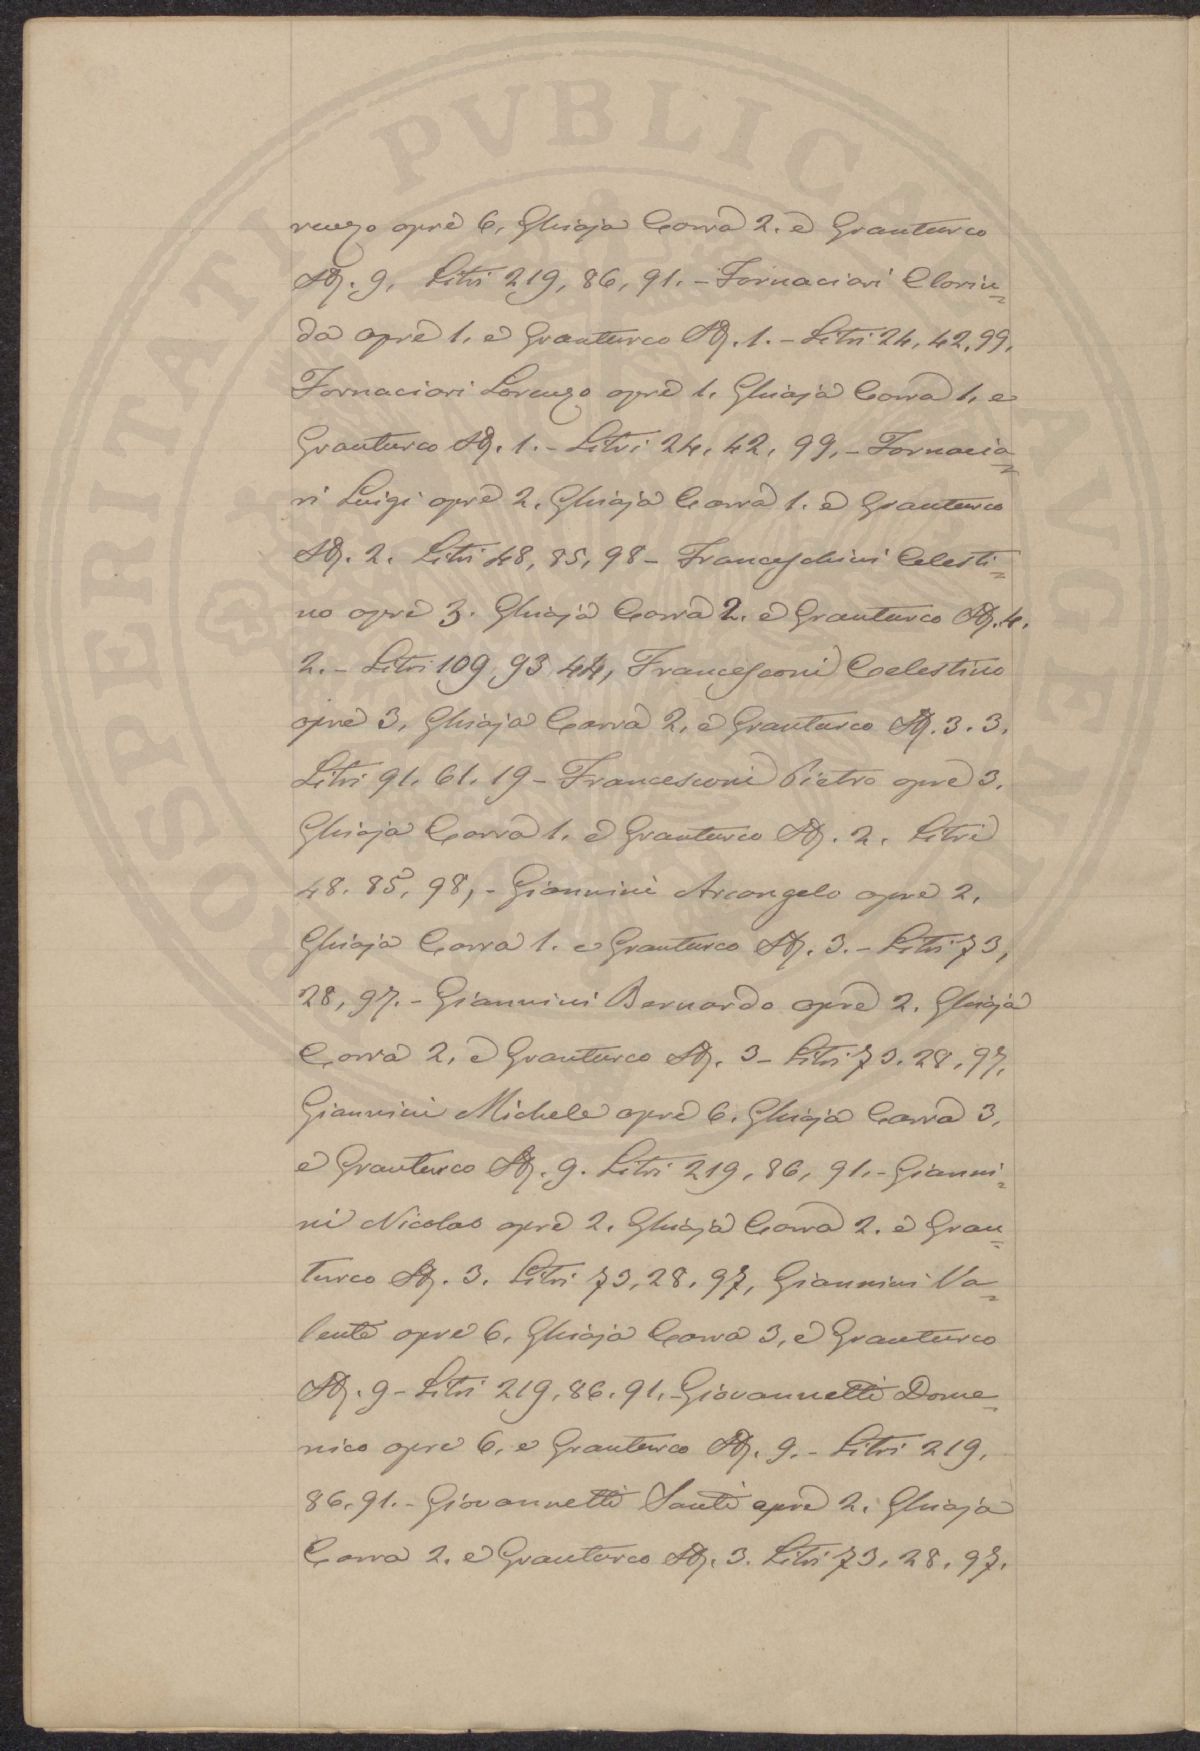 PROSPERITATI PVBLICAE AVGENDAE
renzo opre 6, Ghiaja Carra 2. e Granturco
St. 9, Litri 219, 86, 91. - Fornaciari Clorin=
da opre 1. e Granturco St. 1. - Litri 24, 42, 99.
Fornaciari Lorenzo opre 1. Ghiaja Carra 1. e
Granturco St. 1. - Litri 24, 42, 99, - Fornacia=
ri Luigi opre 2. Ghiaja Carra 1. e Granturco
St. 2. Litri 48, 85, 98 - Franceschini Celesti=
no opre 3. Ghiaja Carra 2. e Granturco St. 4.
2. - Litri 109, 93, 44, Francesconi Celestino
opre 3, Ghiaja Carra 2, e Granturco St. 3. 3.
Litri 91. 61. 19 - Francesconi Pietro opre 3.
Ghiaja Carra 1. e Granturco St. 2. Litri
48. 85, 98, - Giannini Arcangelo opre 2,
Ghiaja Carra 1. e Granturco St. 3. - Litri 73,
28, 97. - Giannini Bernardo opre 2. Ghiaja
Carra 2, e Granturco St. 3 - Litri 73. 28, 97,
Giannini Michele opre 6. Ghiaja Carra 3,
e Granturco St. 9. Litri 219, 86, 91. - Gianni=
ni Nicolao opre 2. Ghiaja Carra 2. e Gran=
turco St. 3. Litri 73, 28, 97, Giannini Va=
lente opre 6, Ghiaja Carra 3, e Granturco
St. 9 - Litri 219, 86. 91. - Giovannetti Dome=
nico opre 6, e Granturco St. 9. - Litri 219,
86, 91. - Giovannetti Santi opre 2. Ghiaja
Carra 2. e Granturco St. 3. Litri 73, 28, 97.